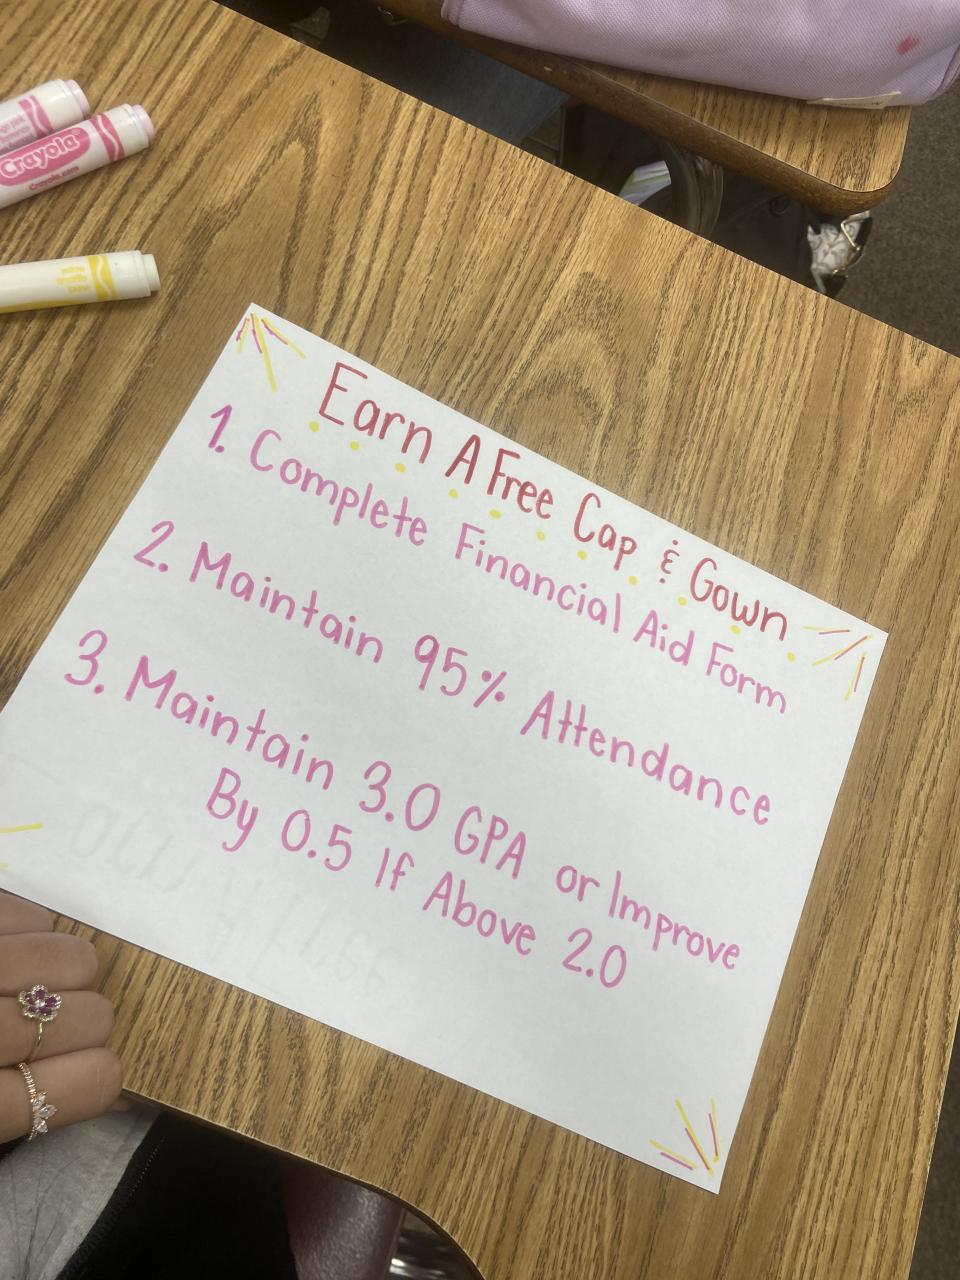 Crayola
Crayola.com
Earn A Free Cap & Gown
1. Complete Financial Aid Form
2. Maintain 95% Attendance
3. Maintain 3.0 GPA or Improve
By 0.5 If Above 2.0